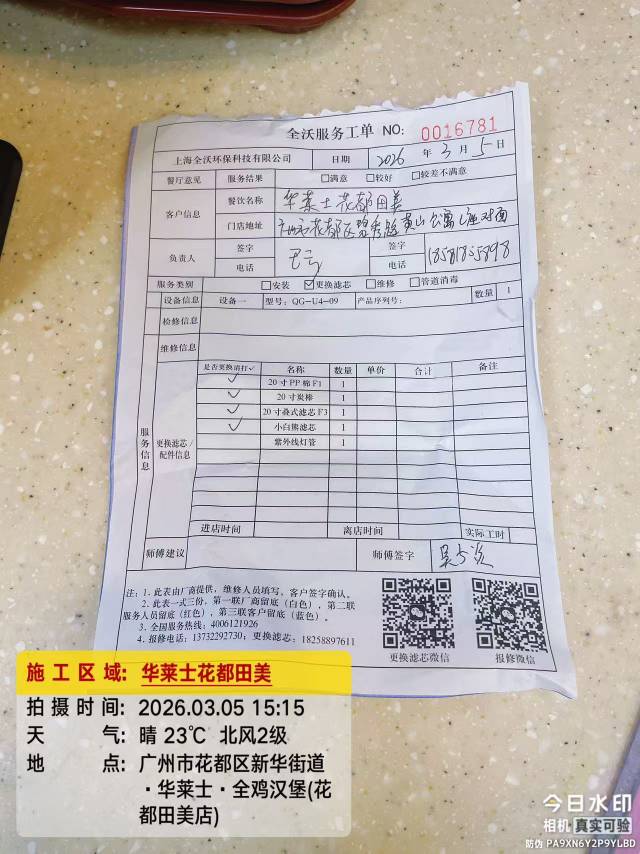 全沃服务工单 NO: 0016781
上海全沃环保科技有限公司 日期 2026 年 3 月 5 日
餐厅意见 服务结果 □满意 □较好 □较差不满意
客户信息 餐饮名称 华莱士花都田美
门店地址 广州市花都区 黄山公寓 对面
负责人 签字 签字
电话 电话 18581855898
服务类别 □安装 ☑更换滤芯 □维修 □管道消毒
设备信息 设备一 型号: QG-U4-09 产品序列号: 数量 1
检修信息
维修信息
服务信息
更换滤芯/配件信息
是否更换请打✓ 名称 数量 单价 合计 备注
✓ 20寸PP棉F1 1
✓ 20寸炭棒 1
✓ 20寸叠式滤芯F3 1
✓ 小白熊滤芯 1
紫外线灯管 1
进店时间 离店时间 实际工时
师傅建议 师傅签字
注: 1. 此表由厂商提供, 维修人员填写, 客户签字确认。
2. 此表一式三份, 第一联厂商留底(白色), 第二联
服务人员留底(红色), 第三联客户留底(蓝色)。
3. 全国服务热线: 4006121926
4. 报修电话: 13732292730; 更换滤芯: 18258897611
更换滤芯微信 报修微信
施工区域: 华莱士花都田美
拍摄时间: 2026.03.05 15:15
天气: 晴 23℃ 北风2级
地点: 广州市花都区新华街道
·华莱士·全鸡汉堡(花
都田美店)
今日水印
相机 真实可验
防伪 PA9XN6Y2P9YLBD